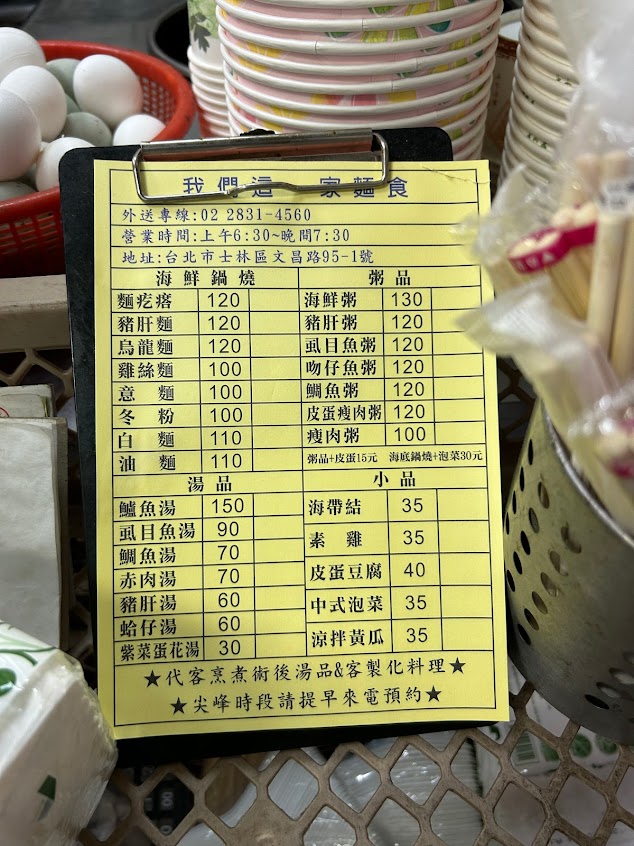 我們這一家麵食
外送專線:02 2831-4560
營業時間:上午6:30~晚間7:30
地址:台北市士林區文昌路95-1號
海鮮鍋燒
麵疙瘩 120
豬肝麵 120
烏龍麵 120
雞絲麵 100
意麵 100
冬粉 100
白麵 110
油麵 110
粥品
海鮮粥 130
豬肝粥 120
虱目魚粥 120
吻仔魚粥 120
鯛魚粥 120
皮蛋瘦肉粥 120
瘦肉粥 100
粥品+皮蛋15元 海底鍋燒+泡菜30元
湯品
鱸魚湯 150
虱目魚湯 90
鯛魚湯 70
赤肉湯 70
豬肝湯 60
蛤仔湯 60
紫菜蛋花湯 30
小品
海帶結 35
素雞 35
皮蛋豆腐 40
中式泡菜 35
涼拌黃瓜 35
★代客烹煮術後湯品&客製化料理★
★尖峰時段請提早來電預約★